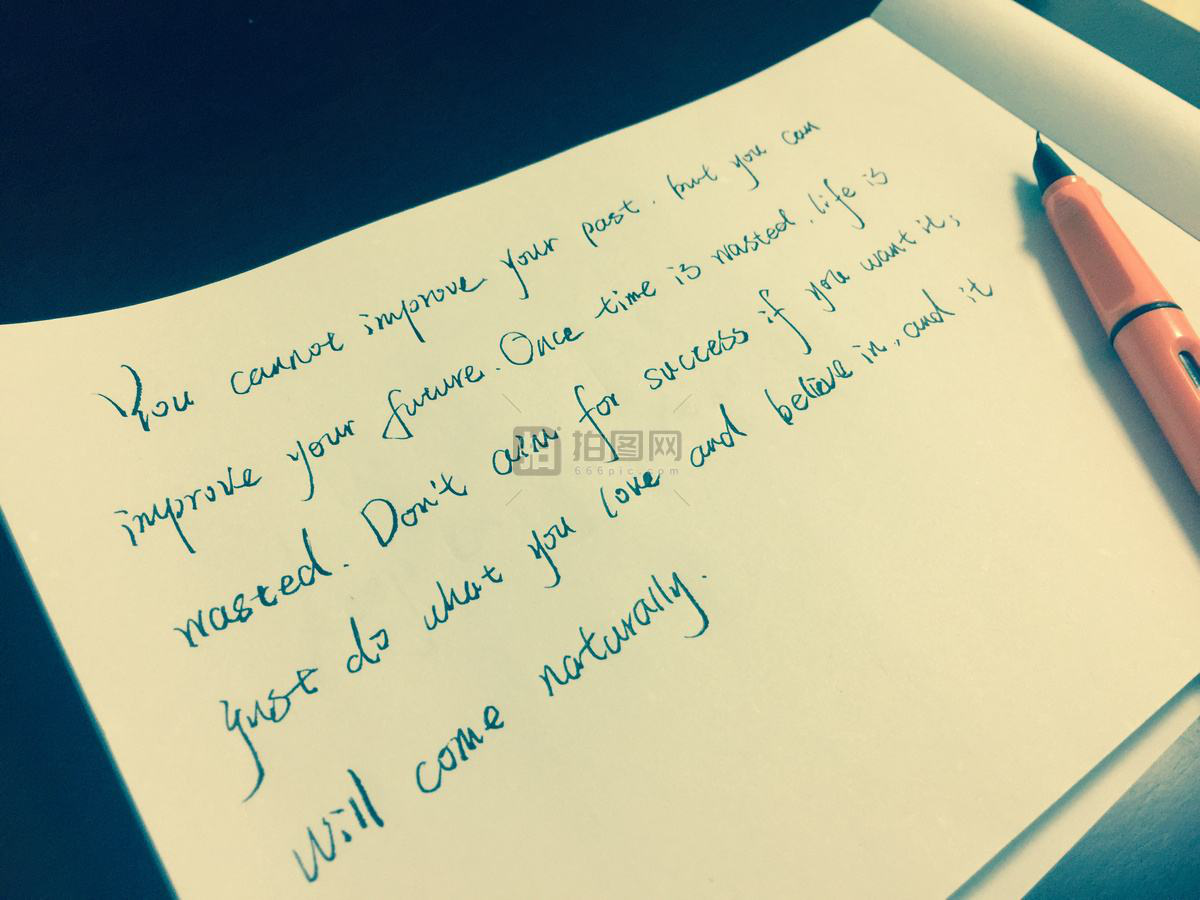 You cannot improve your past, but you can
improve your future. Once time is wasted, life is
wasted. Don't aim for success if you want it;
just do what you love and believe in, and it
will come naturally.
拍图网
666pic.com